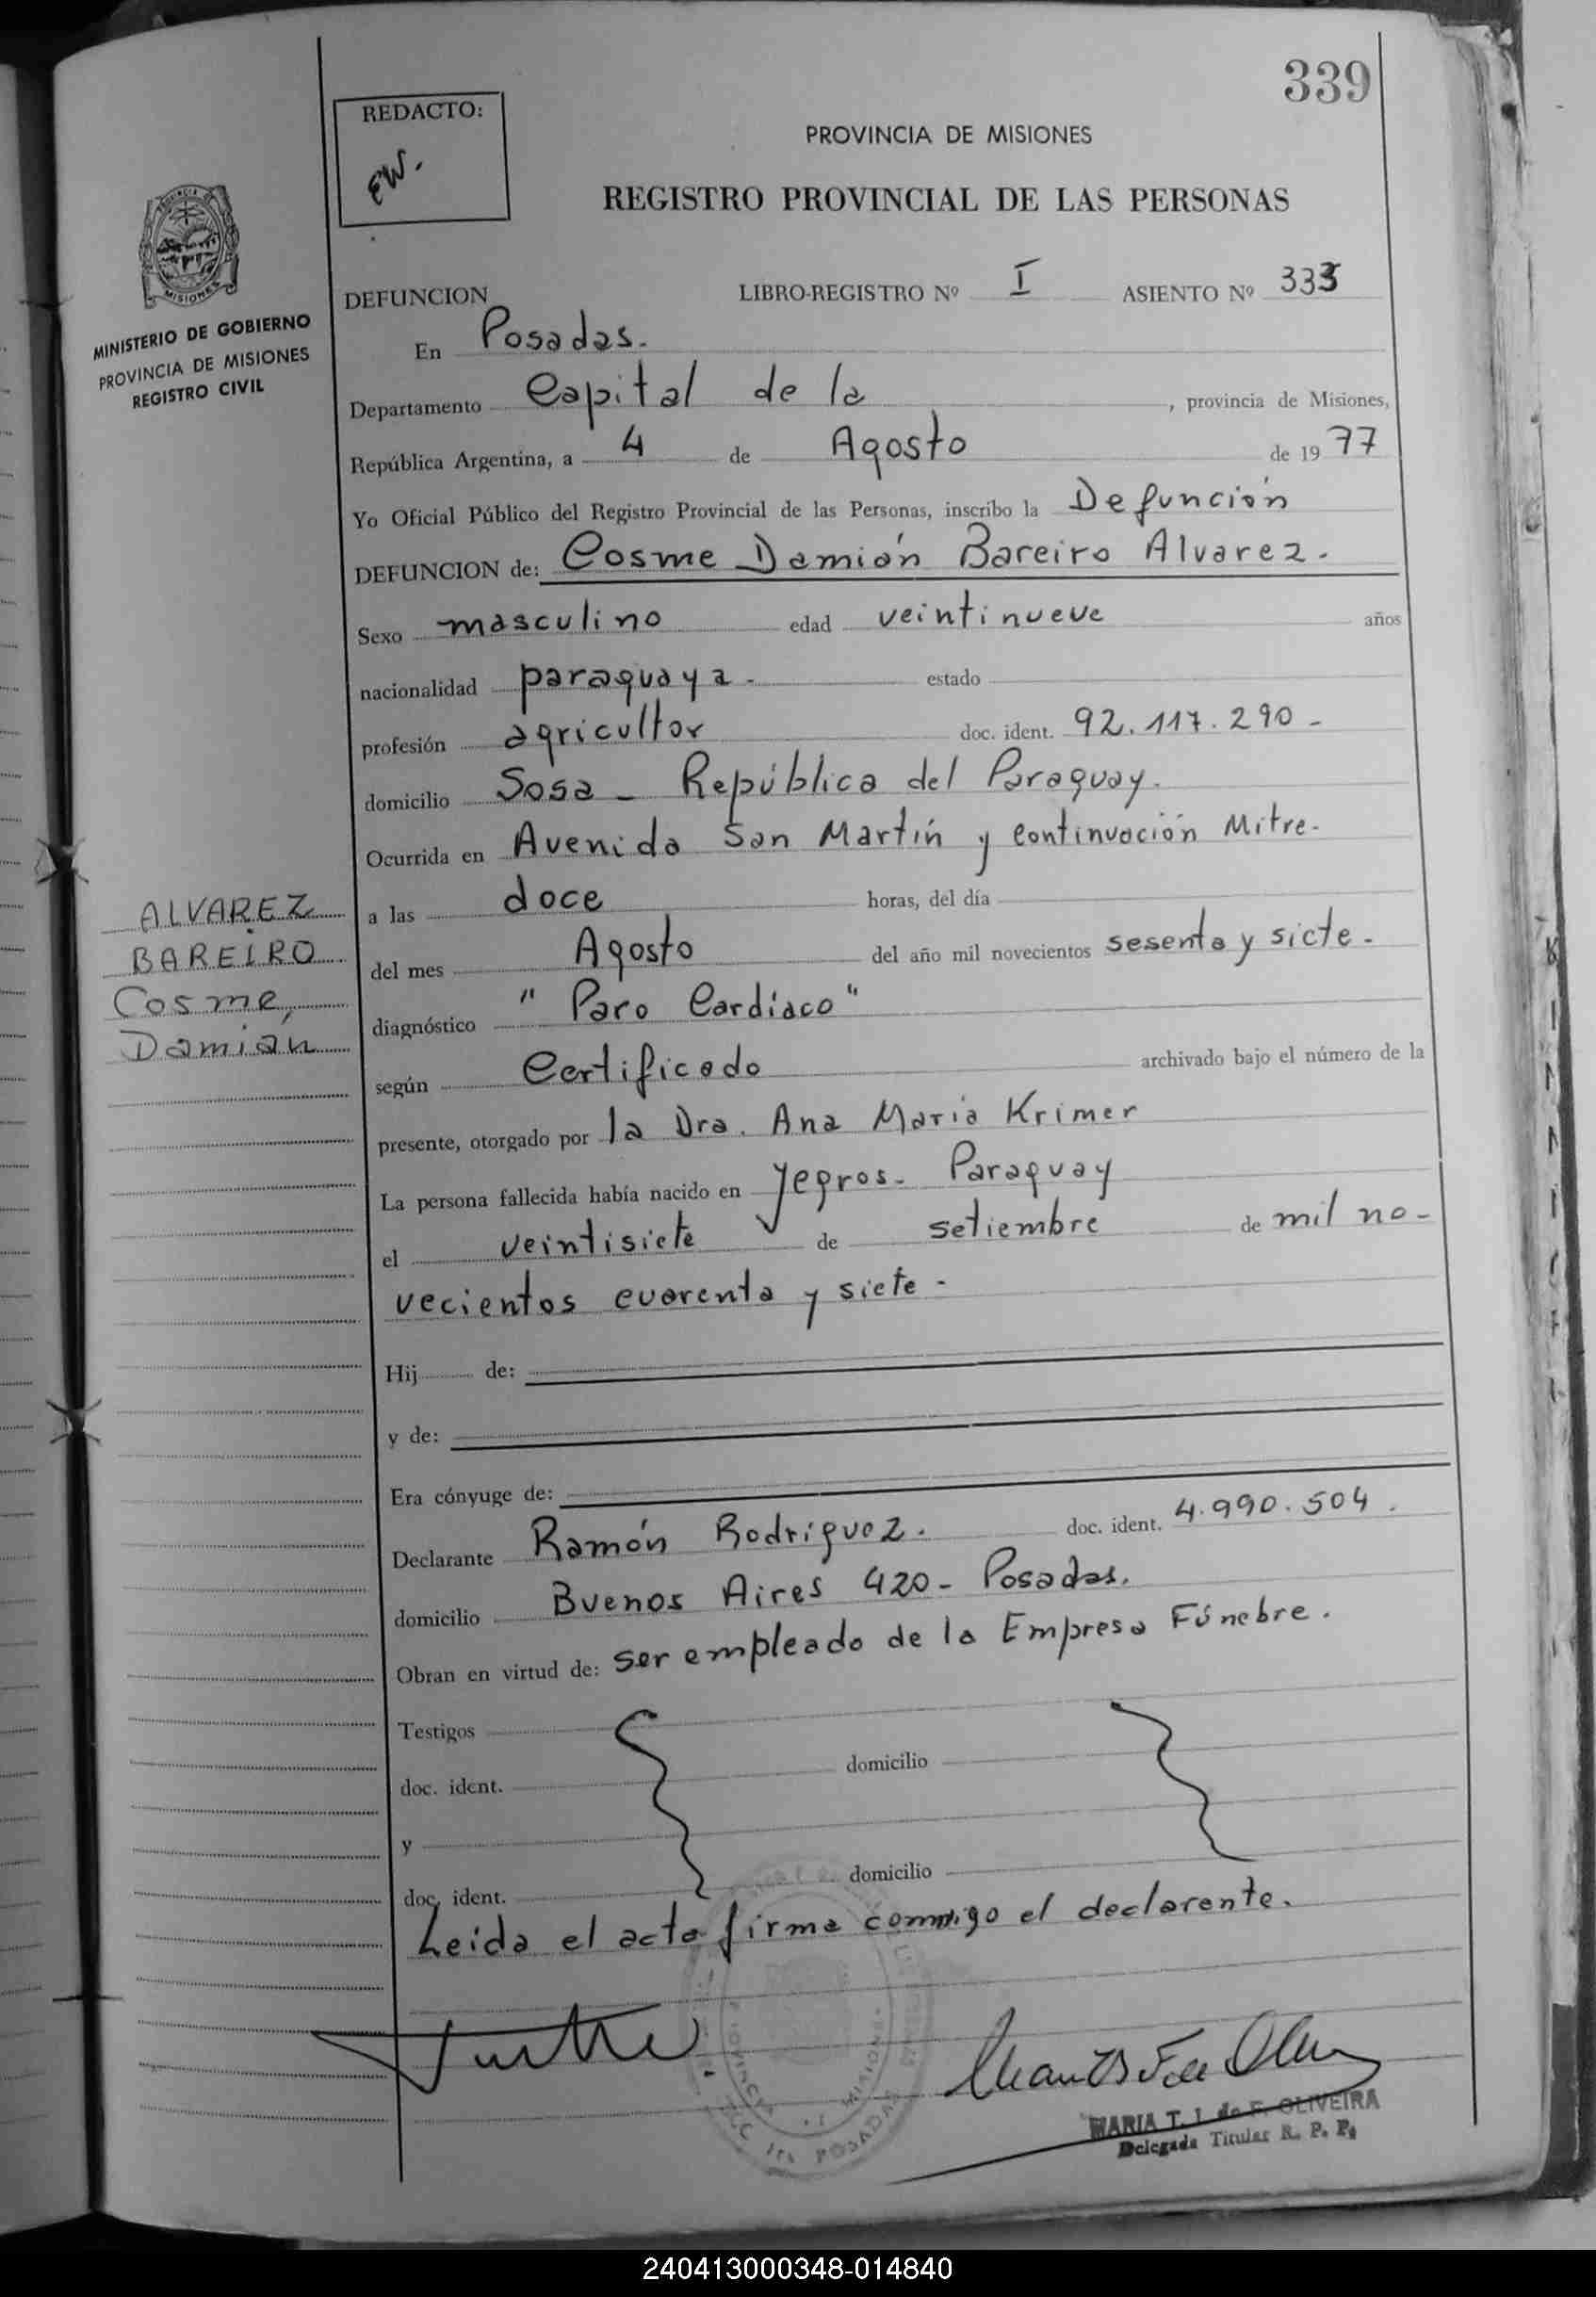 339
REDACTO:
EW.
PROVINCIA DE MISIONES
REGISTRO PROVINCIAL DE LAS PERSONAS
MISIONES
MINISTERIO DE GOBIERNO
PROVINCIA DE MISIONES
REGISTRO CIVIL
DEFUNCION LIBRO-REGISTRO Nº I ASIENTO Nº 333
En Posadas.
Departamento Capital de la , provincia de Misiones,
República Argentina, a 4 de Agosto de 19 77
Yo Oficial Público del Registro Provincial de las Personas, inscribo la Defunción
DEFUNCION de: Cosme Damián Bareiro Alvarez.
Sexo masculino edad veintinueve años
nacionalidad paraguaya - estado
profesión agricultor doc. ident. 92.117.290 -
domicilio Sosa - República del Paraguay.
Ocurrida en Avenida San Martín y continuación Mitre.
a las doce horas, del día
del mes Agosto del año mil novecientos sesenta y siete.
diagnóstico " Paro Cardíaco "
según Certificado archivado bajo el número de la
presente, otorgado por la Dra. Ana María Krimer
La persona fallecida había nacido en Yegros - Paraguay
el veintisiete de setiembre de mil no-
vecientos cuarenta y siete -
ALVAREZ
BAREIRO
Cosme,
Damián
Hij de:
y de:
Era cónyuge de:
Declarante Ramón Rodriguez. doc. ident. 4.990.504.
domicilio Buenos Aires 420 - Posadas.
Obran en virtud de: ser empleado de la Empresa Fúnebre.
Testigos
domicilio
doc. ident.
y
domicilio
doc. ident.
Leida el acta firma conmigo el declarante.
MARIA T. I. de F. OLIVEIRA
Delegada Titular R. P. P.
POSADAS
240413000348-014840